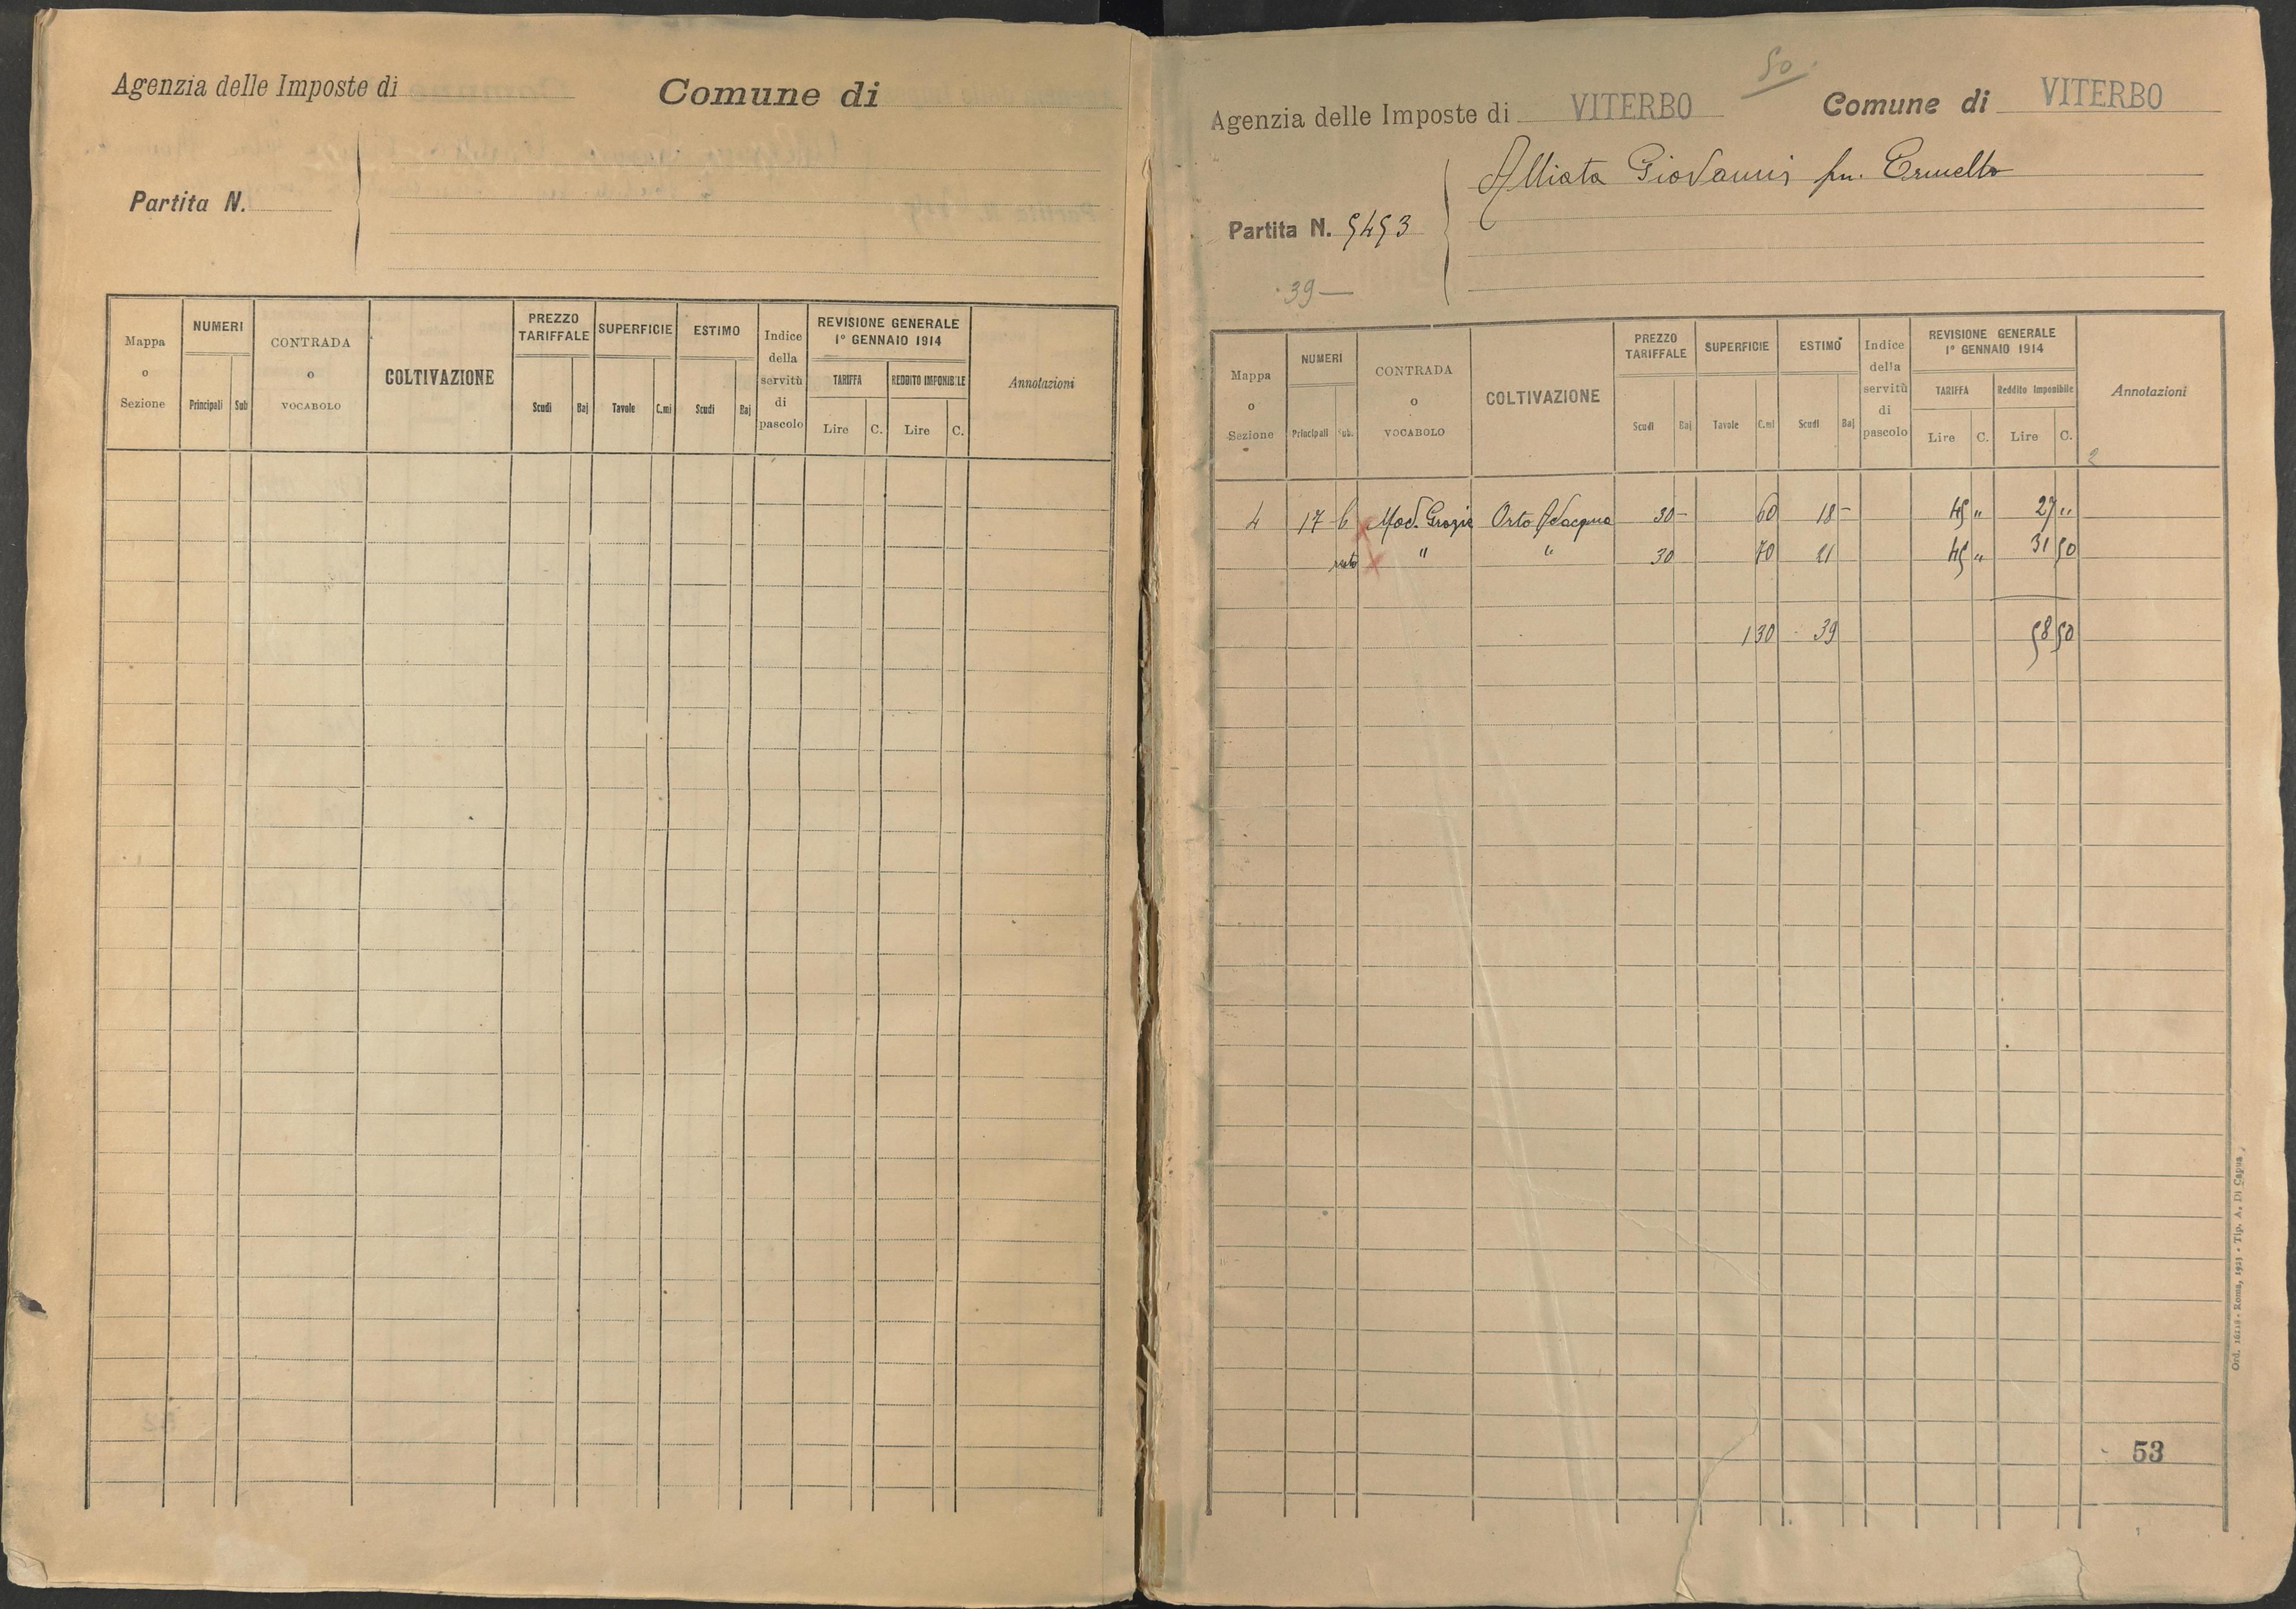 Agenzia delle Imposte di
Comune di
Partita N.
Mappa o Sezione
NUMERI
Principali
Sub
CONTRADA o VOCABOLO
COLTIVAZIONE
PREZZO TARIFFALE
Scudi
Baj
SUPERFICIE
Tavole
C.mi
ESTIMO
Scudi
Baj
Indice della servitù di pascolo
REVISIONE GENERALE
1° GENNAIO 1914
TARIFFA
Lire
C.
REDDITO IMPONIBILE
Lire
C.
Annotazioni
50
Agenzia delle Imposte di VITERBO
Comune di VITERBO
Alliata Giovanni fu. Ermello
Partita N. 5453
39 —
Mappa o Sezione
NUMERI
Principali
Sub.
CONTRADA o VOCABOLO
COLTIVAZIONE
PREZZO TARIFFALE
Scudi
Baj
SUPERFICIE
Tavole
C.mi
ESTIMO
Scudi
Baj
Indice della servitù di pascolo
REVISIONE GENERALE
1° GENNAIO 1914
TARIFFA
Lire
C.
Reddito Imponibile
Lire
C.
Annotazioni
2
4 17 b Mad. Grazie Orto Adacqua 30 – 60 18 – 45 " 27 "
resto " " 30 70 21 45 " 31 50
130 39 58 50
53
Ord. 16218 - Roma, 1923 - Tip. A. Di Capua